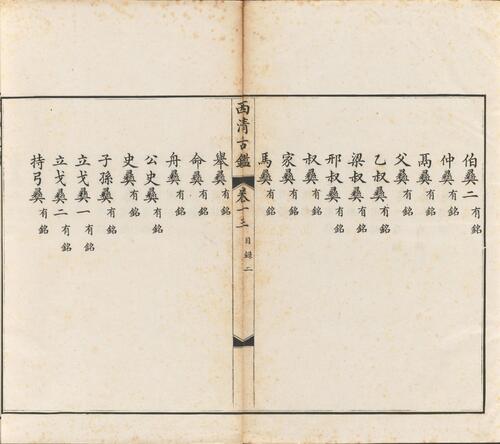 伯彝二有銘
仲彝有銘
鬲彝有銘
父彝有銘
乙叔彝有銘
梁叔彝有銘
邢叔彝有銘
叔彝有銘
家彝有銘
馬彝有銘
西清古鑑 卷十三 目錄 二
舉彝有銘
命彝有銘
舟彝有銘
公史彝有銘
史彝有銘
子孫彝有銘
立戈彝一有銘
立戈彝二有銘
持弓彝有銘